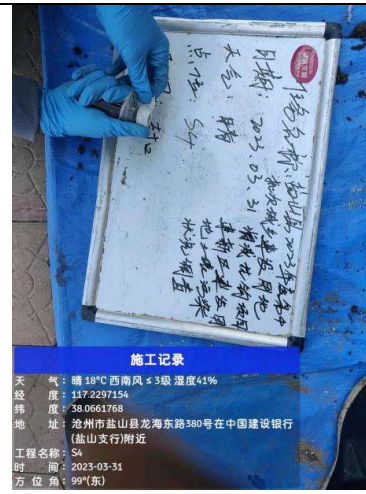 任务名称:盐山县2022年度第
批次城乡建设用地
增减挂钩项目
建新区建设用
地土壤污染
状况调查
日期:2023.03.31
天气:晴
点位:S4
施工记录
天 气:晴 18℃ 西南风 ≤ 3级 湿度41%
经 度:117.2297154
纬 度:38.0661768
地 址:沧州市盐山县龙海东路380号在中国建设银行
(盐山支行)附近
工程名称:S4
时 间:2023-03-31
方 位 角:99°(东)